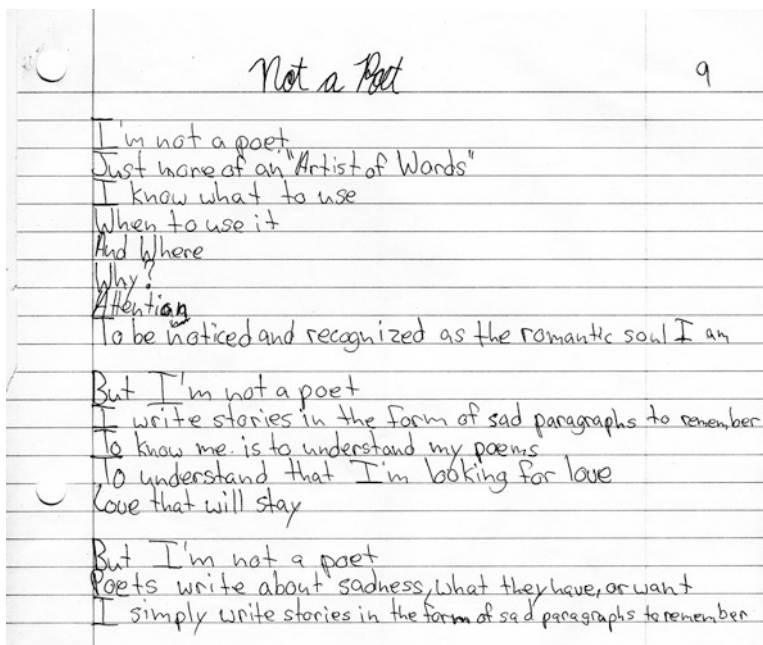 Not a Poet
9
I'm not a poet
Just more of an "Artist of Words"
I know what to use
When to use it
And Where
Why?
Attention
To be noticed and recognized as the romantic soul I am
But I'm not a poet
I write stories in the form of sad paragraphs to remember
To know me is to understand my poems
To understand that I'm looking for love
Love that will stay
But I'm not a poet
Poets write about sadness, what they have, or want
I simply write stories in the form of sad paragraphs to remember